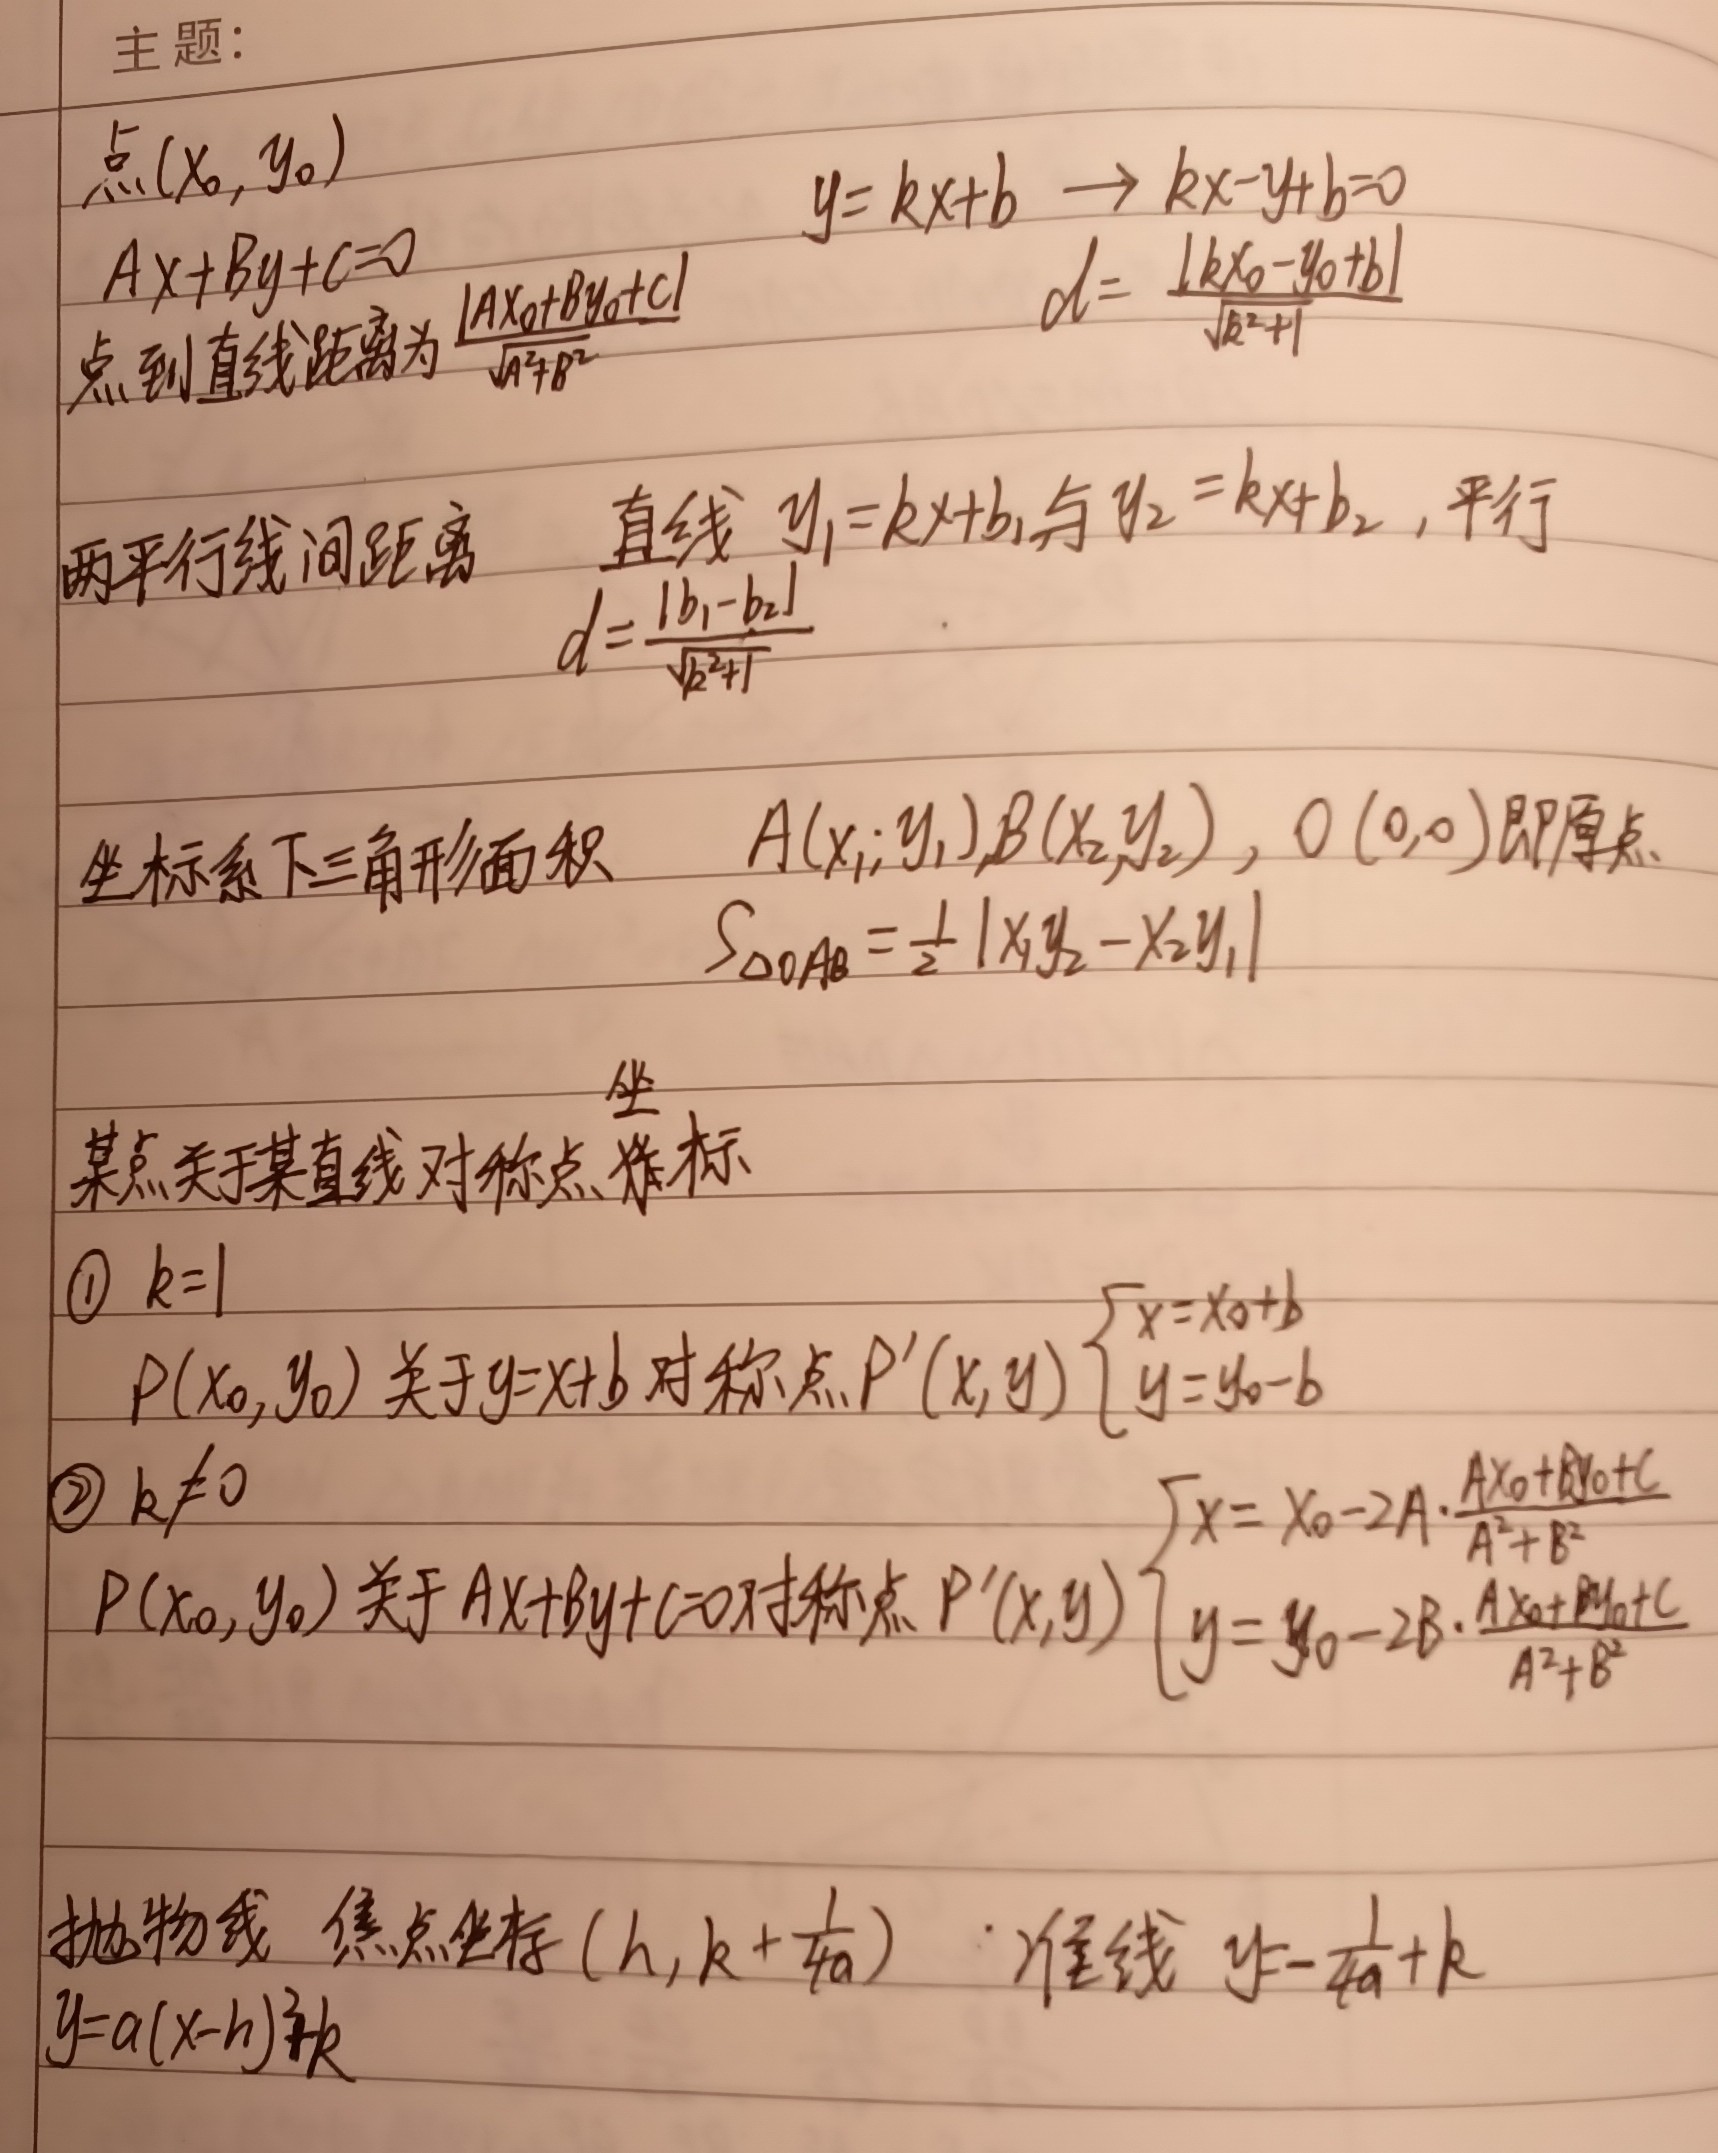 主题：
点(x₀, y₀)
Ax+By+C=0
点到直线距离为 |Ax₀+By₀+C|/√(A²+B²)
y=kx+b → kx-y+b=0
d= |kx₀-y₀+b|/√(k²+1)
两平行线间距离 直线 y₁=kx+b₁与y₂=kx+b₂，平行
d=|b₁-b₂|/√(k²+1)
坐标系下三角形面积 A(x₁,y₁),B(x₂,y₂)，O(0,0)即原点
S△OAB=1/2|x₁y₂-x₂y₁|
某点关于某直线对称点坐标
① k=1
P(x₀,y₀)关于y=x+b对称点P′(x,y) {x=x₀+b
y=y₀-b
② k≠0
P(x₀,y₀)关于Ax+By+C=0对称点 P′(x,y) {x=x₀-2A·(Ax₀+By₀+C)/(A²+B²)
y=y₀-2B·(Ax₀+By₀+C)/(A²+B²)
抛物线 焦点坐标(h, k+1/4a) 准线 y=-1/4a+k
y=a(x-h)²+k